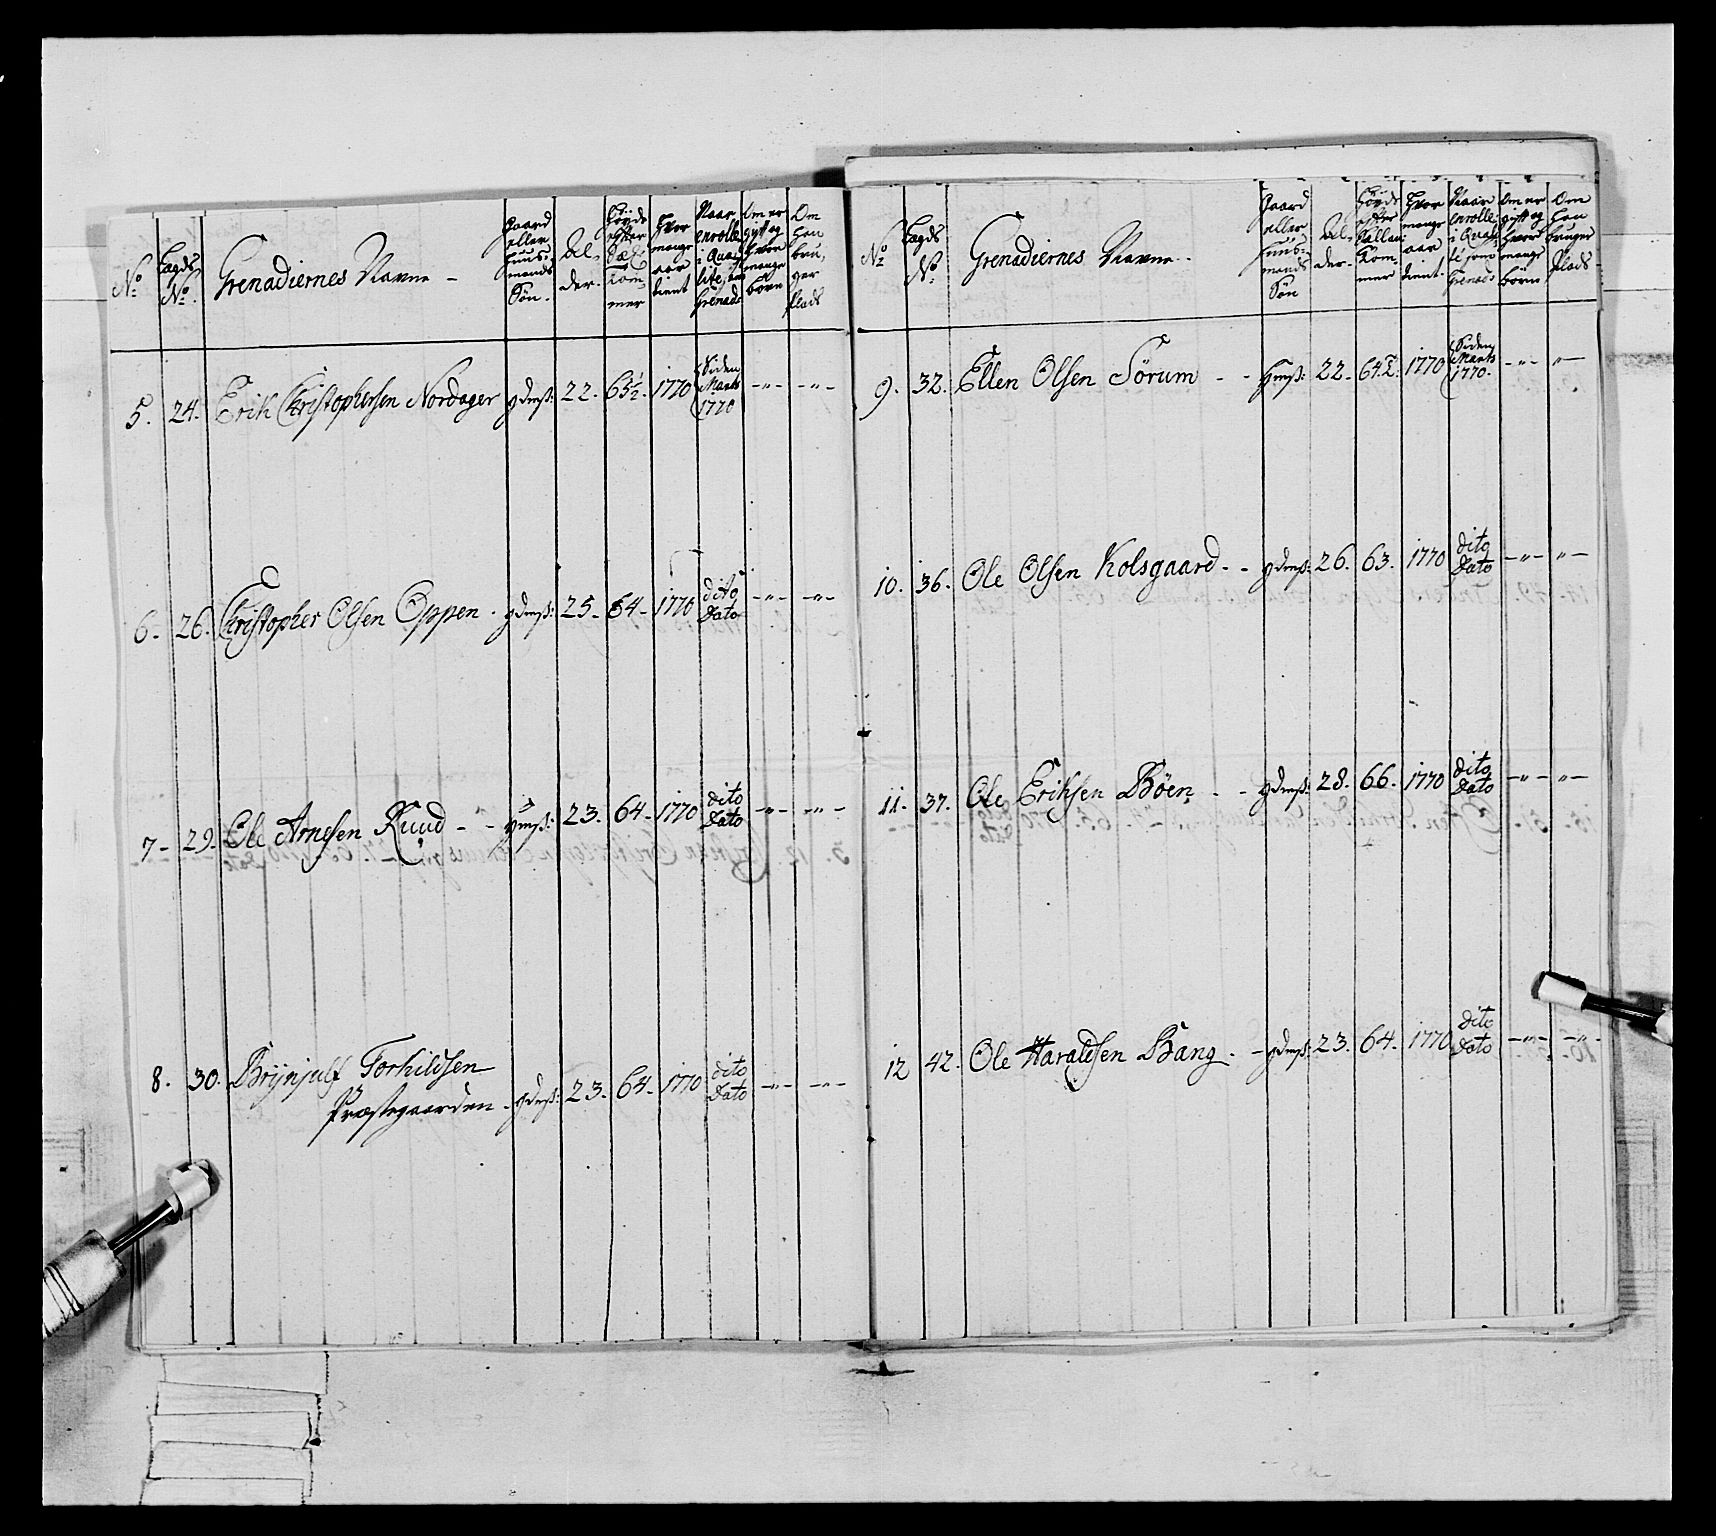 No
Lægds No.
Grenadiernes Navne -
Gaard eller Huusmands Søn.
Alder.
Høyde efter Tommer
Hvor mange aar tient
Naar enrolle i Qualite som Grenad:
Om er gift og hvor mange børn
Om han bruger Plads
5. 24. Erik Christophersen Nordager gdmß: 22. 65½. 1770 Siden Marts 1770 -"- -"-
6. 26. Christopher Olsen Oppen. gdmß: 25. 64. 1770 dito Dato -"- -"-
7. 29. Ole Arnesen Ruud - - hmß: 23. 64. 1770 dito Dato -"- -"-
8. 30. Brijnjulf Torhildsen
Præstegaarden - gdmß: 23. 64. 1770 dito Dato -"- -"-
No
Lægds No
Grenadiernes Navne -
Gaard eller Huusmands Søn
Alder.
Høyde efter Tommer
Hvor mange aar tient.
Naar enrolle i Qualite som Grenad:
Om er gift og hvor mange børn
Om han bruger Plads
9. 32. Ellen Olsen Sørum - - hmß: 22. 64½. 1770 Siden Marts 1770. -"- "-
10. 36. Ole Olsen Kolsgaard - - gdmß: 26. 63. 1770 dito Dato -"- "-
11. 37. Ole Eriksen Bøen - - gdmß: 28. 66. 1770 dito Dato -"- "-
12 42. Ole Haraldsen Bang - - gdmß: 23. 64. 1770 dito Dato -"- -"-